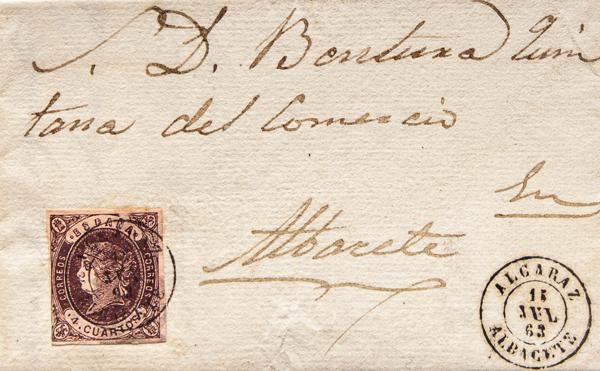 S. D. Bentura Quin
tana del Comercio
En
Albacete
CORREOS
CORREOS
4. CUARTOS
ALCARAZ
15
JUL
63
ALBACETE